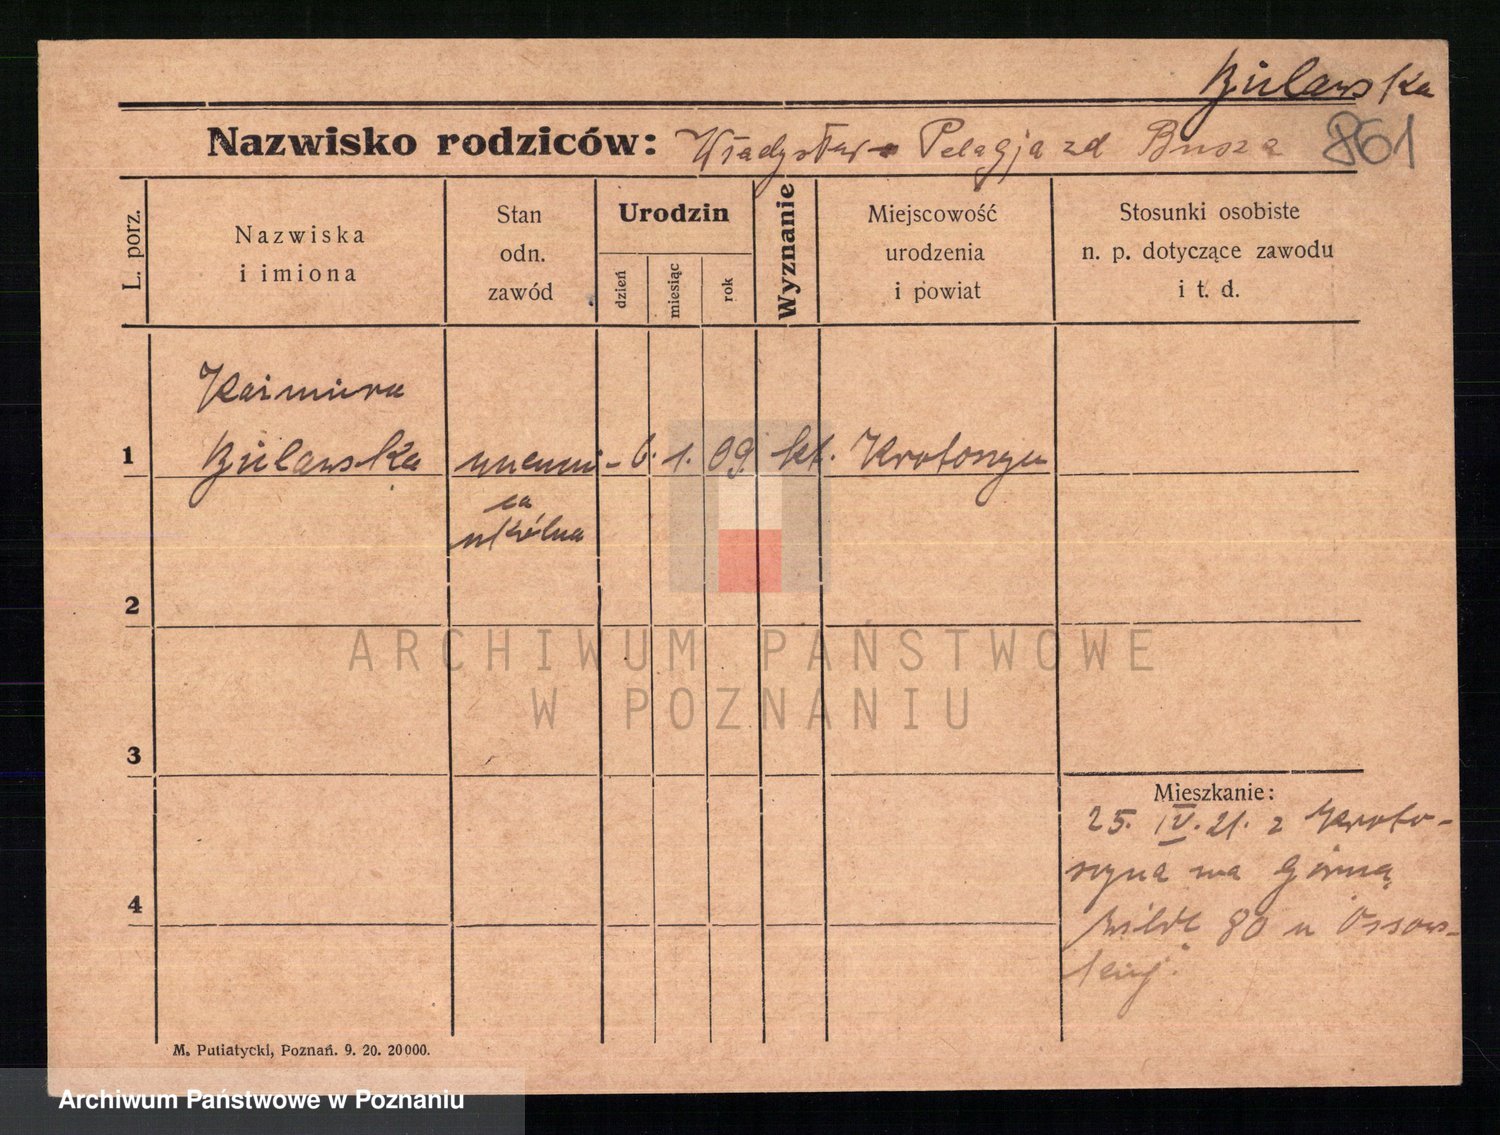 Bielawska
Nazwisko rodziców: Władysław Pelagja zd Busza 861
L. porz.
Nazwiska
i imiona
Stan
odn.
zawód
Urodzin
dzień
miesiąc
rok
Wyznanie
Miejscowość
urodzenia
i powiat
Stosunki osobiste
n. p. dotyczące zawodu
i t. d.
Kaimiera
1 Bielawska uczenni- 6. 1. 09 kt. Krotoszyn
ca
szkólna
2
3
4
Mieszkanie:
25. IV. 21. z Kroto-
szyna na Górną
Wildę 80 u Ossows-
kiej.
M. Putiatycki, Poznań. 9. 20. 20000.
ARCHIWUM PAŃSTWOWE
W POZNANIU
Archiwum Państwowe w Poznaniu